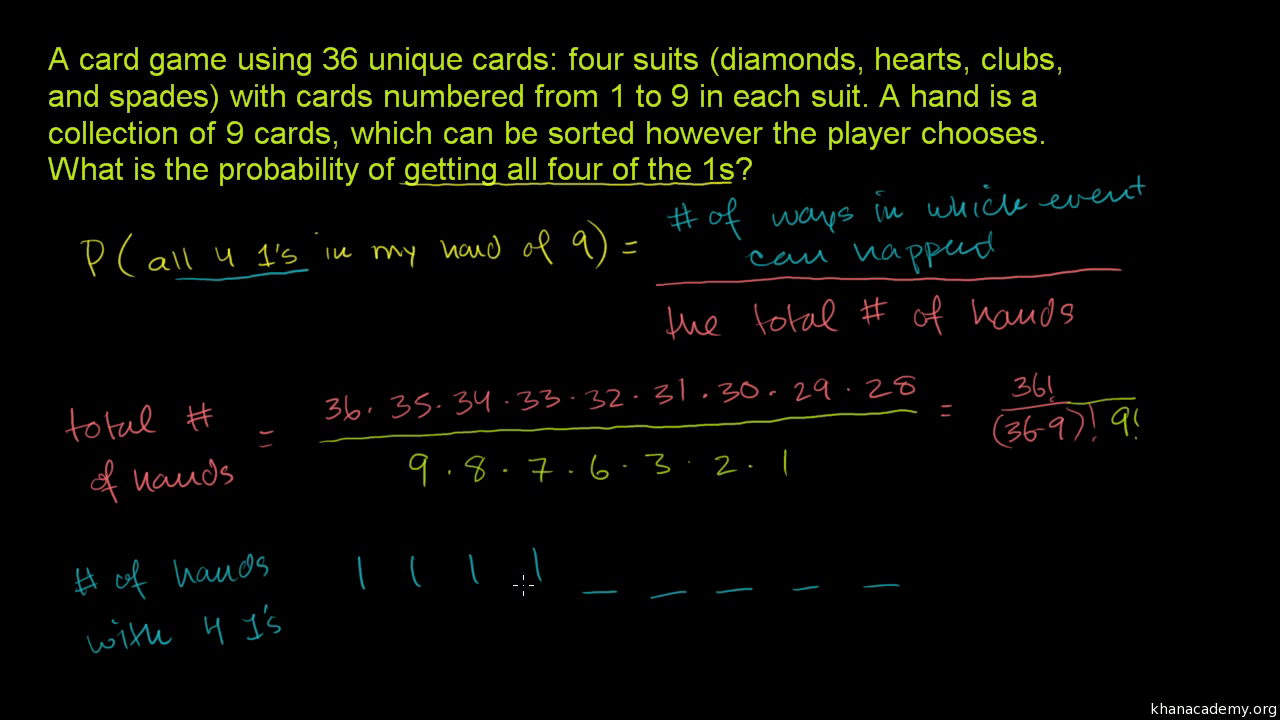 A card game using 36 unique cards: four suits (diamonds, hearts, clubs,
and spades) with cards numbered from 1 to 9 in each suit. A hand is a
collection of 9 cards, which can be sorted however the player chooses.
What is the probability of getting all four of the 1s?
P(all 4 1's in my hand of 9) =
# of ways in which event
can happend
the total # of hands
total #
of hands
=
36 · 35 · 34 · 33 · 32 · 31 · 30 · 29 · 28
9 · 8 · 7 · 6 · 3 · 2 · 1
=
36!
(36-9)! 9!
# of hands
with 4 1's
1 1 1 1 _ _ _ _ _
khanacademy.org